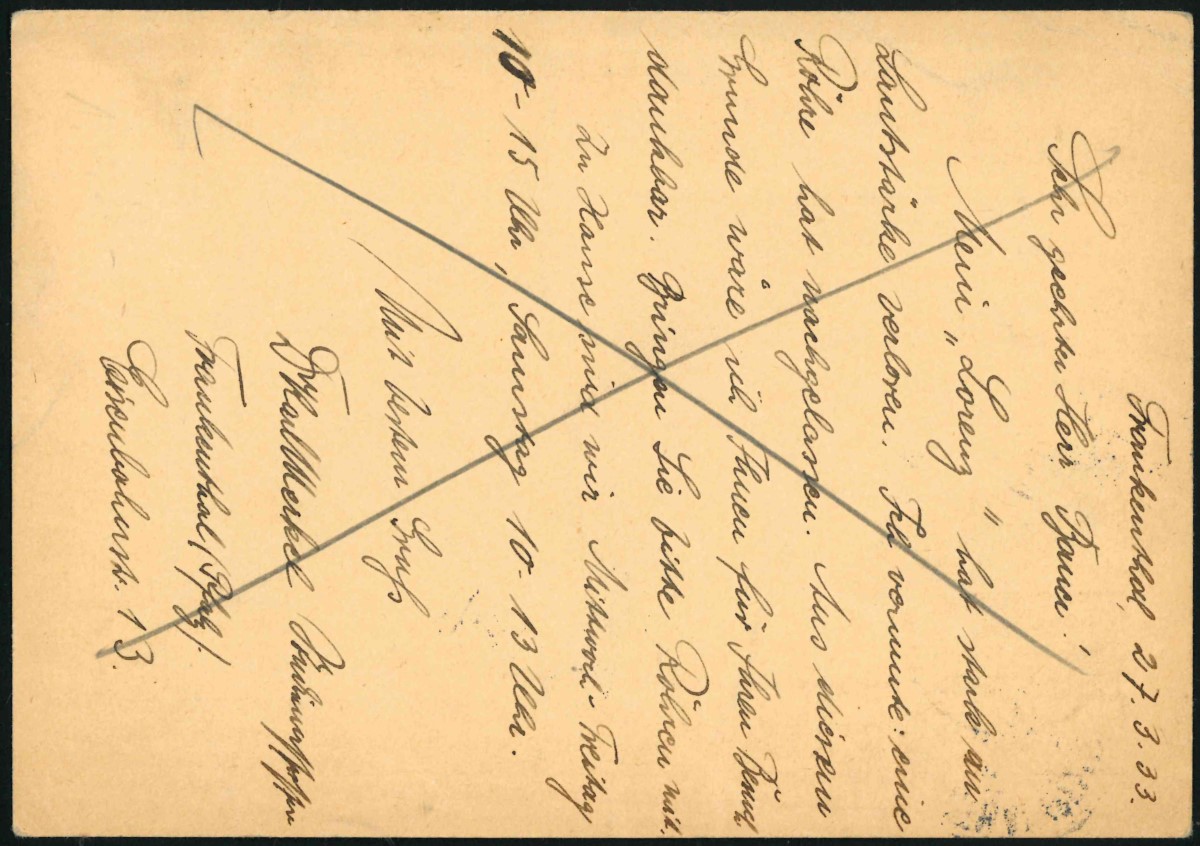 Frankenthal, 27.3.33.
Sehr geehrter Herr Bauer!
Mein „Lorenz" hat stark an
Lautstärke verloren. Ich vermute: eine
Röhre hat nachgelassen. Aus diesem
Grunde wäre ich Ihnen für Ihren Besuch
dankbar. Bringen Sie bitte Röhren mit.
Zu Hause sind wir Mittwoch - Freitag
10 - 15 Uhr, Samstag 10 - 13 Uhr.
Mit bestem Gruß
Dr Karl Merkel
Frankenthal (Pfalz)
Eisenbahnstr. 13.